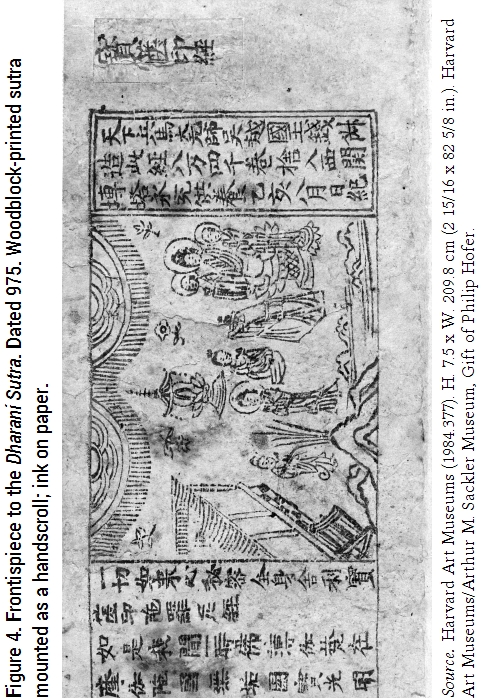 Figure 4. Frontispiece to the Dharani Sutra. Dated 975. Woodblock-printed sutra
mounted as a handscroll; ink on paper.
寶篋印經
天下兵馬大元帥吳越國王錢俶
造此經八萬四千卷捨入西關
塼塔永充供養乙亥八月日紀
一切如來心秘密全身舍利寶
篋印陀羅尼經
如是我聞一時佛薄伽梵在
摩伽陀國無垢園寶光明
Source. Harvard Art Museums (1984.377). H. 7.5 x W. 209.8 cm (2 15/16 x 82 5/8 in.). Harvard
Art Museums/Arthur M. Sackler Museum, Gift of Philip Hofer.